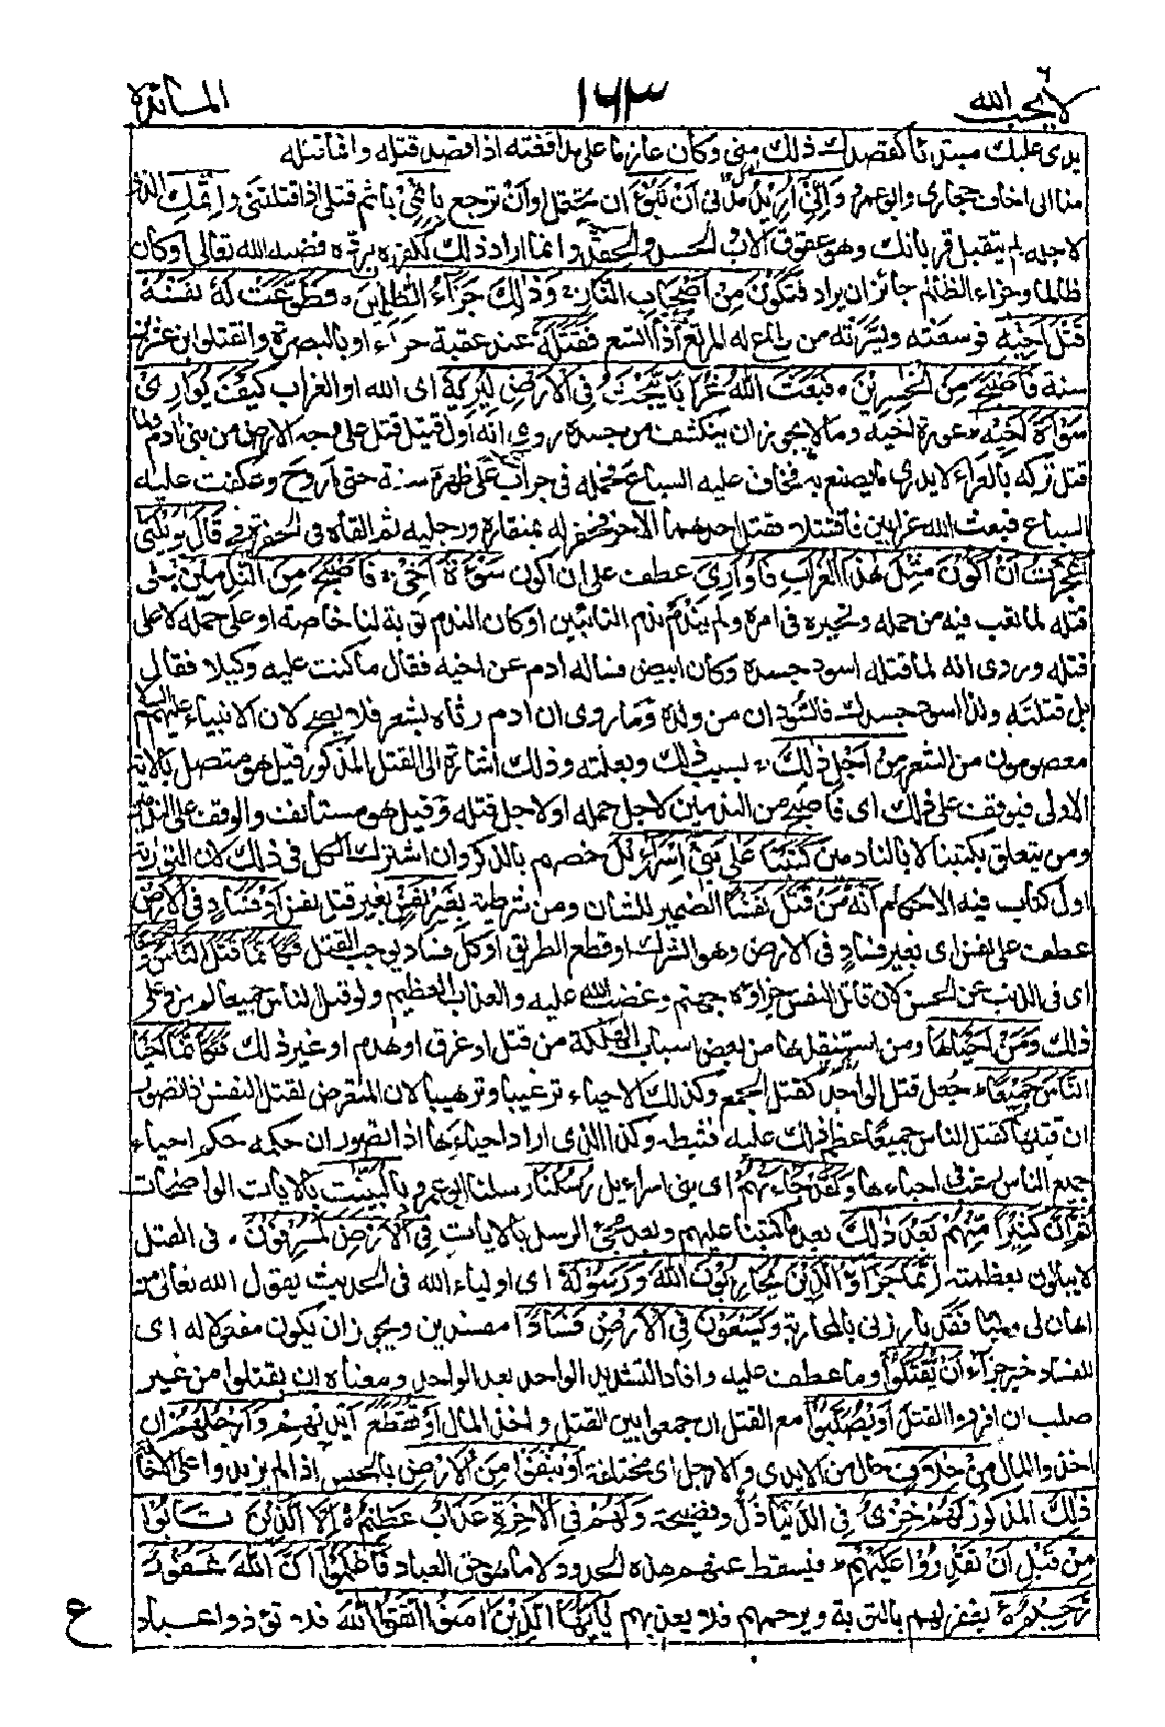 لايحب الله ٦
١٦٣
المائدة
يدى عليك مبتدئا كقصدك ذلك منى وكان عازما على مدافعته اذا قصد قتله وانما قتله
اخاف حجازى وابو عمرو وَاِنِّىْ اُرِيْدُ اَنْ تَبُوْٓءَ ان تحتمل او ان ترجع بِاِثْمِىْ باثم قتلى اذا قتلتنى وَاِثْمِكَ الذى
لاجله لم يتقبل قربانك وهو عقوق الاب والحسد والحقد وانما اراد ذلك لكفره برده قضية الله تعالى او كان
ظالما وجزاء الظالم جائز ان يراد فَتَكُوْنَ مِنْ اَصْحٰبِ النَّارِ وَذٰلِكَ جَزَآءُ الظّٰلِمِيْنَ فَطَوَّعَتْ لَهٗ نَفْسُهٗ
قَتْلَ اَخِيْهِ فوسعته ويسرته من طاع له المرتع اذا اتسع فَقَتَلَهٗ عند عقبة حراء او بالبصرة والمقتول ابن عشرين
سنة فَاَصْبَحَ مِنَ الْخٰسِرِيْنَ فَبَعَثَ اللّٰهُ غُرَابًا يَّبْحَثُ فِى الْاَرْضِ لِيُرِيَهٗ اى الله او الغراب كَيْفَ يُوَارِىْ
سَوْءَةَ اَخِيْهِ عورة اخيه وما لا يجوز ان ينكشف من جسده روى انه اول قتيل قتل على وجه الارض من بنى ادم ولما
قتل تركه بالعراء لا يدرى ما يصنع به فخاف عليه السباع فحمله فى جراب على ظهره سنة حتى اروح وعكفت عليه
السباع فبعث الله غرابين فاقتتلا فقتل احدهما الاخر فحفر له بمنقاره ورجليه ثم القاه فى الحفرة فح قَالَ يٰوَيْلَتٰى
اَعَجَزْتُ اَنْ اَكُوْنَ مِثْلَ هٰذَا الْغُرَابِ فَاُوَارِىَ عطف على ان اكون سَوْءَةَ اَخِىْ فَاَصْبَحَ مِنَ النّٰدِمِيْنَ على
قتله لما تعب فيه من حمله وتحيره فى امره ولم يندم ندم التائبين او كان الندم توبة لنا خاصة او على حمله لا على
قتله وروى انه لما قتله اسود جسده وكان ابيض فساله ادم عن اخيه فقال ما كنت عليه وكيلا فقال
بل قتلته ولذا اسود جسدك فالسودان من ولده وما روى ان ادم رثاه بشعر فلا يصح لان الانبياء عليهم السلام
معصومون من الشعر مِنْ اَجْلِ ذٰلِكَ بسبب ذلك وبعلته وذلك اشارة الى القتل المذكور قيل هو متصل بالاية
الاولى فيوقف على ذلك اى فاصبح من الندمين لاجل حمله او لاجل قتله وقيل هو مستانف والوقف على الندمين
ومن يتعلق بكتبنا لا بالنادمين كَتَبْنَا عَلٰى بَنِىْٓ اِسْرَآءِيْلَ خصهم بالذكر وان اشترك الكل فى ذلك لان التورىة
اول كتاب فيه الاحكام اَنَّهٗ مَنْ قَتَلَ نَفْسًا الضمير للشان ومن شرطية بِغَيْرِ نَفْسٍ بغير قتل نفس اَوْ فَسَادٍ فِى الْاَرْضِ
عطف على نفس اى بغير فساد فى الارض وهو الشرك او قطع الطريق او كل فساد يوجب القتل فَكَاَنَّمَا قَتَلَ النَّاسَ جَمِيْعًا
اى فى الذنب عن الحسن لان قاتل النفس جزاؤه جهنم وغضب الله عليه والعذاب العظيم ولو قتل الناس جميعا لم يزد على
ذلك وَمَنْ اَحْيَاهَا ومن استنقذها من بعض اسباب الهلكة من قتل او غرق او هدم او غير ذلك فَكَاَنَّمَآ اَحْيَا
النَّاسَ جَمِيْعًا جعل قتل الواحد كقتل الجميع وكذلك الاحياء ترغيبا وترهيبا لان المتعرض لقتل النفس اذا تصور
ان قتلها كقتل الناس جميعا عظم ذلك عليه فثبطه وكذا الذى اراد احياءها اذا تصور ان حكمه حكم احياء
جميع الناس رغب فى احياءها وَلَقَدْ جَآءَتْهُمْ اى بنى اسراءيل رُسُلُنَا رسلنا ابو عمرو بِالْبَيِّنٰتِ بالايات الواضحات
ثُمَّ اِنَّ كَثِيْرًا مِّنْهُمْ بَعْدَ ذٰلِكَ بعد ما كتبنا عليهم وبعد مجئ الرسل بالايات فِى الْاَرْضِ لَمُسْرِفُوْنَ فى القتل
لا يبالون بعظمته اِنَّمَا جَزٰٓؤُا الَّذِيْنَ يُحَارِبُوْنَ اللّٰهَ وَرَسُوْلَهٗ اى اولياء الله فى الحديث يقول الله تعالى من
اهان لى وليا فقد بارزنى بالمحاربة وَيَسْعَوْنَ فِى الْاَرْضِ فَسَادًا مفسدين ويجوز ان يكون مفعولا له اى
للفساد خبر جزاء اَنْ يُّقَتَّلُوْٓا وما عطف عليه وافاد التشديد الواحد بعد الواحد ومعناه ان يقتلوا من غير
صلب ان افردوا القتل اَوْ يُصَلَّبُوْٓا مع القتل ان جمعوا بين القتل واخذ المال اَوْ تُقَطَّعَ اَيْدِيْهِمْ وَاَرْجُلُهُمْ ان
اخذوا المال مِّنْ خِلَافٍ حال من الايدى والارجل اى مختلفة اَوْ يُنْفَوْا مِنَ الْاَرْضِ بالحبس اذا لم يزيدوا على الاخافة
ذٰلِكَ المذكور لَهُمْ خِزْىٌ فِى الدُّنْيَا ذل وفضيحة وَلَهُمْ فِى الْاٰخِرَةِ عَذَابٌ عَظِيْمٌ اِلَّا الَّذِيْنَ تَابُوْا
مِنْ قَبْلِ اَنْ تَقْدِرُوْا عَلَيْهِمْ فيسقط عنهم هذه الحدود لا ما هو حق العباد فَاعْلَمُوْٓا اَنَّ اللّٰهَ غَفُوْرٌ
رَّحِيْمٌ يغفر لهم بالتوبة ويرحمهم فلا يعذبهم يٰٓاَيُّهَا الَّذِيْنَ اٰمَنُوا اتَّقُوا اللّٰهَ فلا تؤذوا عباد
ع